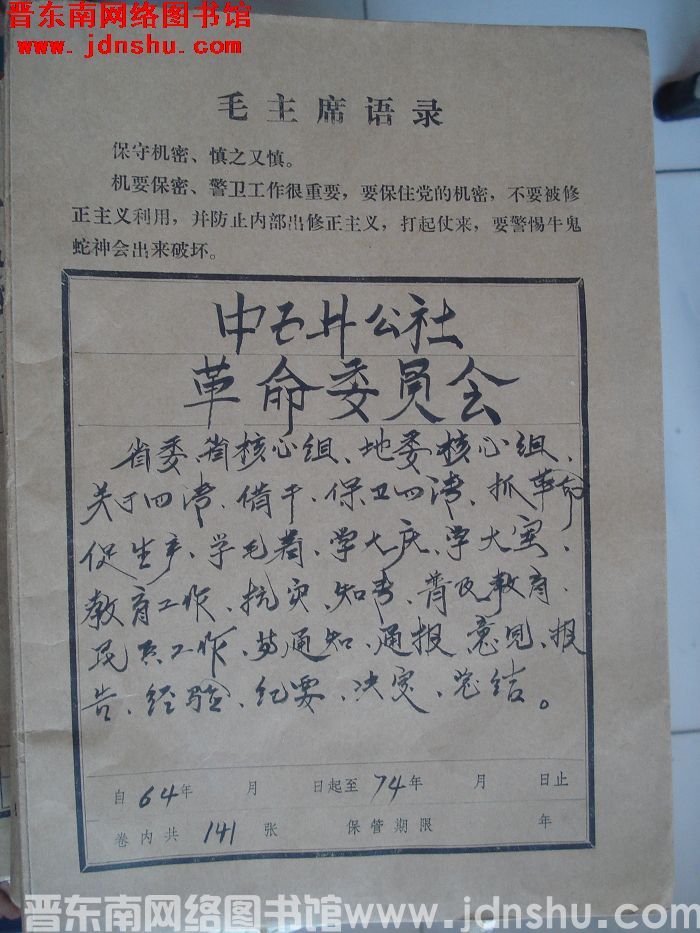 晋东南网络图书馆
www.jdnshu.com
毛主席语录
保守机密、慎之又慎。
机要保密、警卫工作很重要，要保住党的机密，不要被修
正主义利用，并防止内部出修正主义，打起仗来，要警惕牛鬼
蛇神会出来破坏。
中五井公社
革命委员会
省委、省核心组、地委核心组、
关于四清、借干、保卫四清、抓革命
促生产、学毛著、学大庆、学大寨、
教育工作、抗灾、知青、普及教育、
民兵工作、等通知、通报、意见、报
告、经验、纪要、决定、总结。
自64年 月 日起至74年 月 日止
卷内共 141 张 保管期限 年
晋东南网络图书馆 www.jdnshu.com